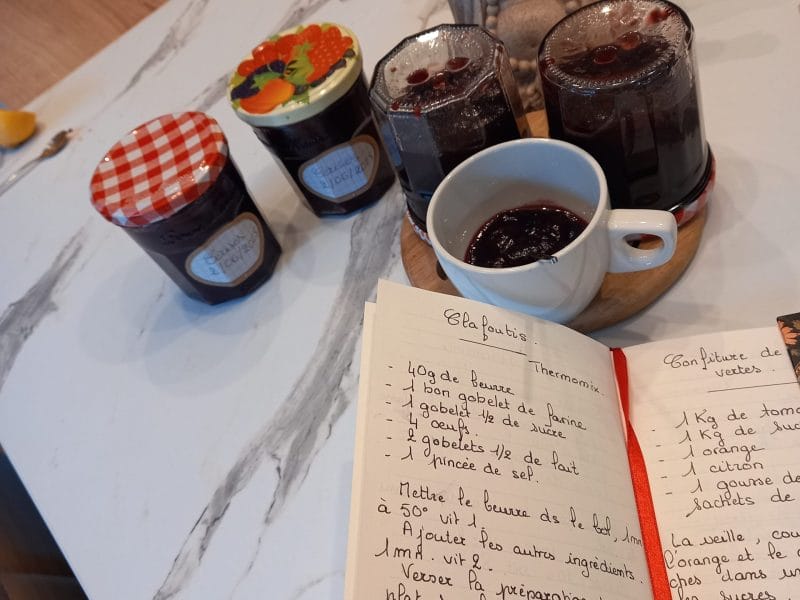 Cerises
2/06/20
Cerises
2/06/20
Clafoutis.
Thermomix.
- 40g de beurre
- 1 bon gobelet de farine
- 1 gobelet 1/2 de sucre
- 4 œufs.
- 2 gobelets 1/2 de lait
- 1 pincée de sel.
Mettre le beurre ds le bol, 1mn
à 50° vit 1.
Ajouter les autres ingrédients.
1mn. vit 2.
Verser la préparation
plat
Confiture de
vertes.
- 1 Kg de toma
- 1 Kg de suc
- 1 orange
- 1 citron
- 1 gousse de
sachets de
La veille, cou
l'orange et le c
ches dans un
sucres.